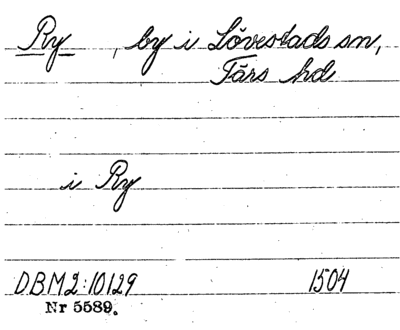 Ry , by i Lövestads sn,
Färs hd
i Ry
D.B.M 2:10129 1504
Nr 5589.